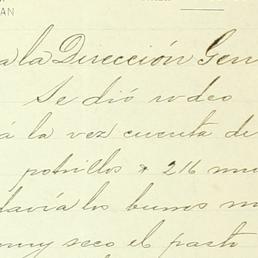 AN
a la Dirección Gen
Se dió rodeo
á la vez cuenta de
potrillos y 216 mu
davía los burros m
muy seco el pasto